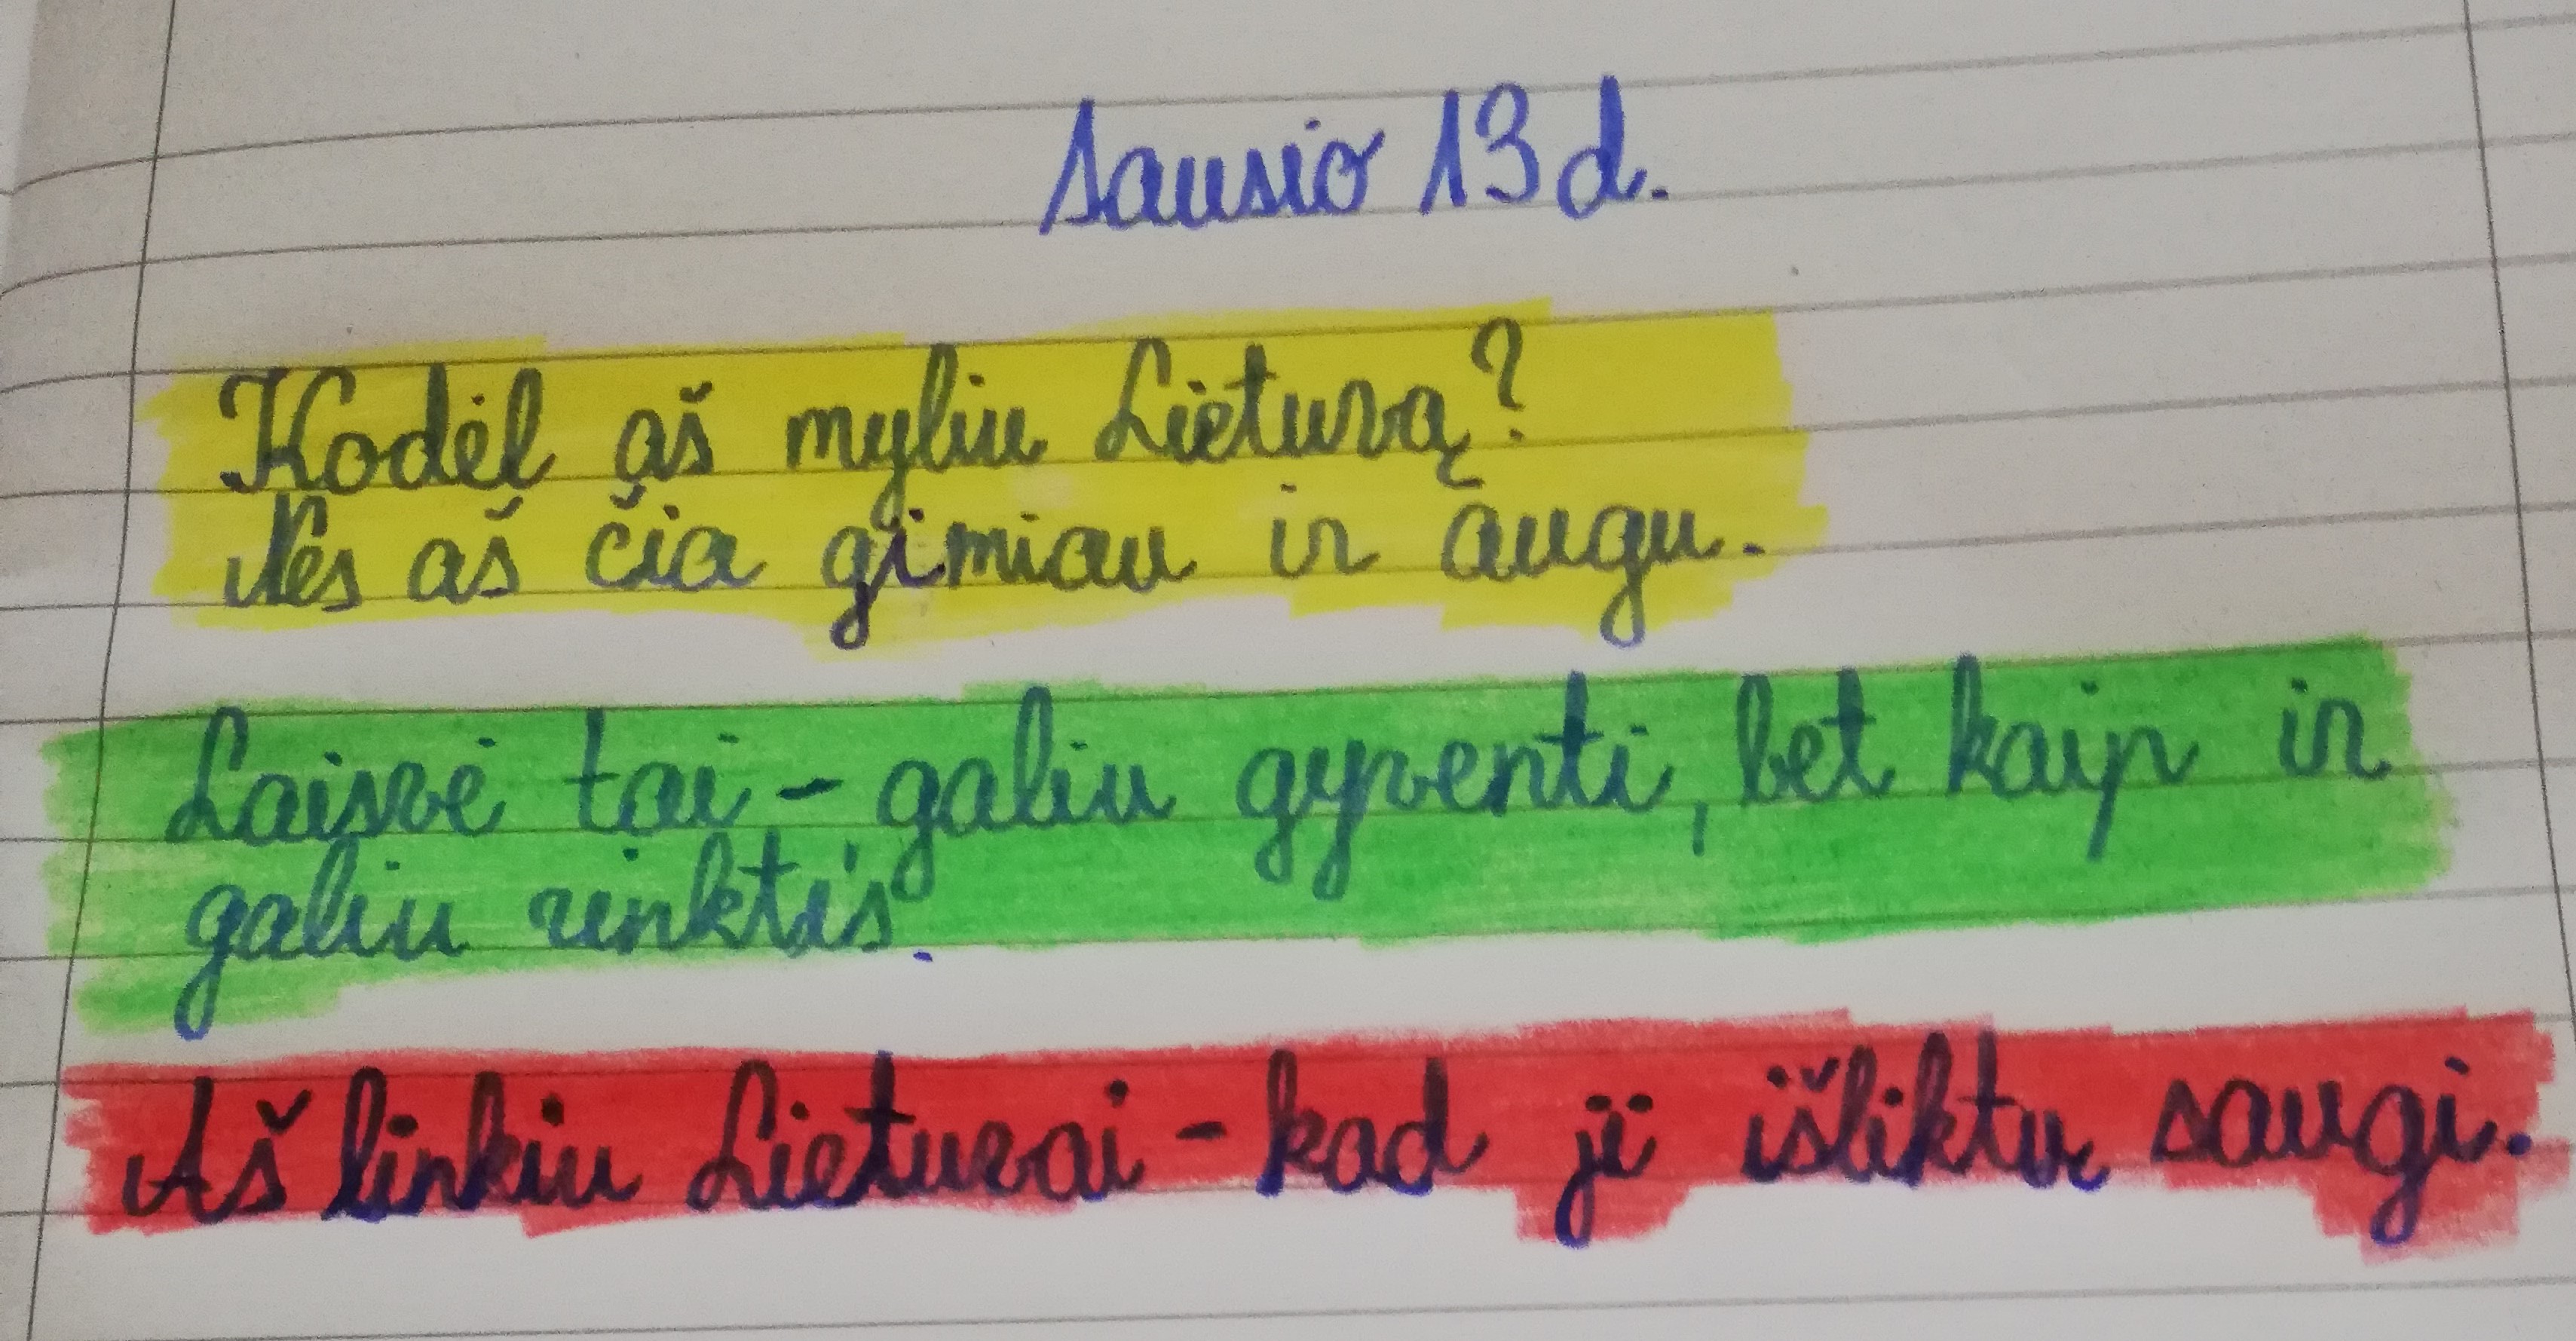 Sausio 13 d.
Kodėl aš myliu Lietuvą?
Nes aš čia gimiau ir augu.
Laisvė tai - galiu gyventi, bet kaip ir
galiu rinktis.
Aš linkiu Lietuvai - kad ji išliktų saugi.